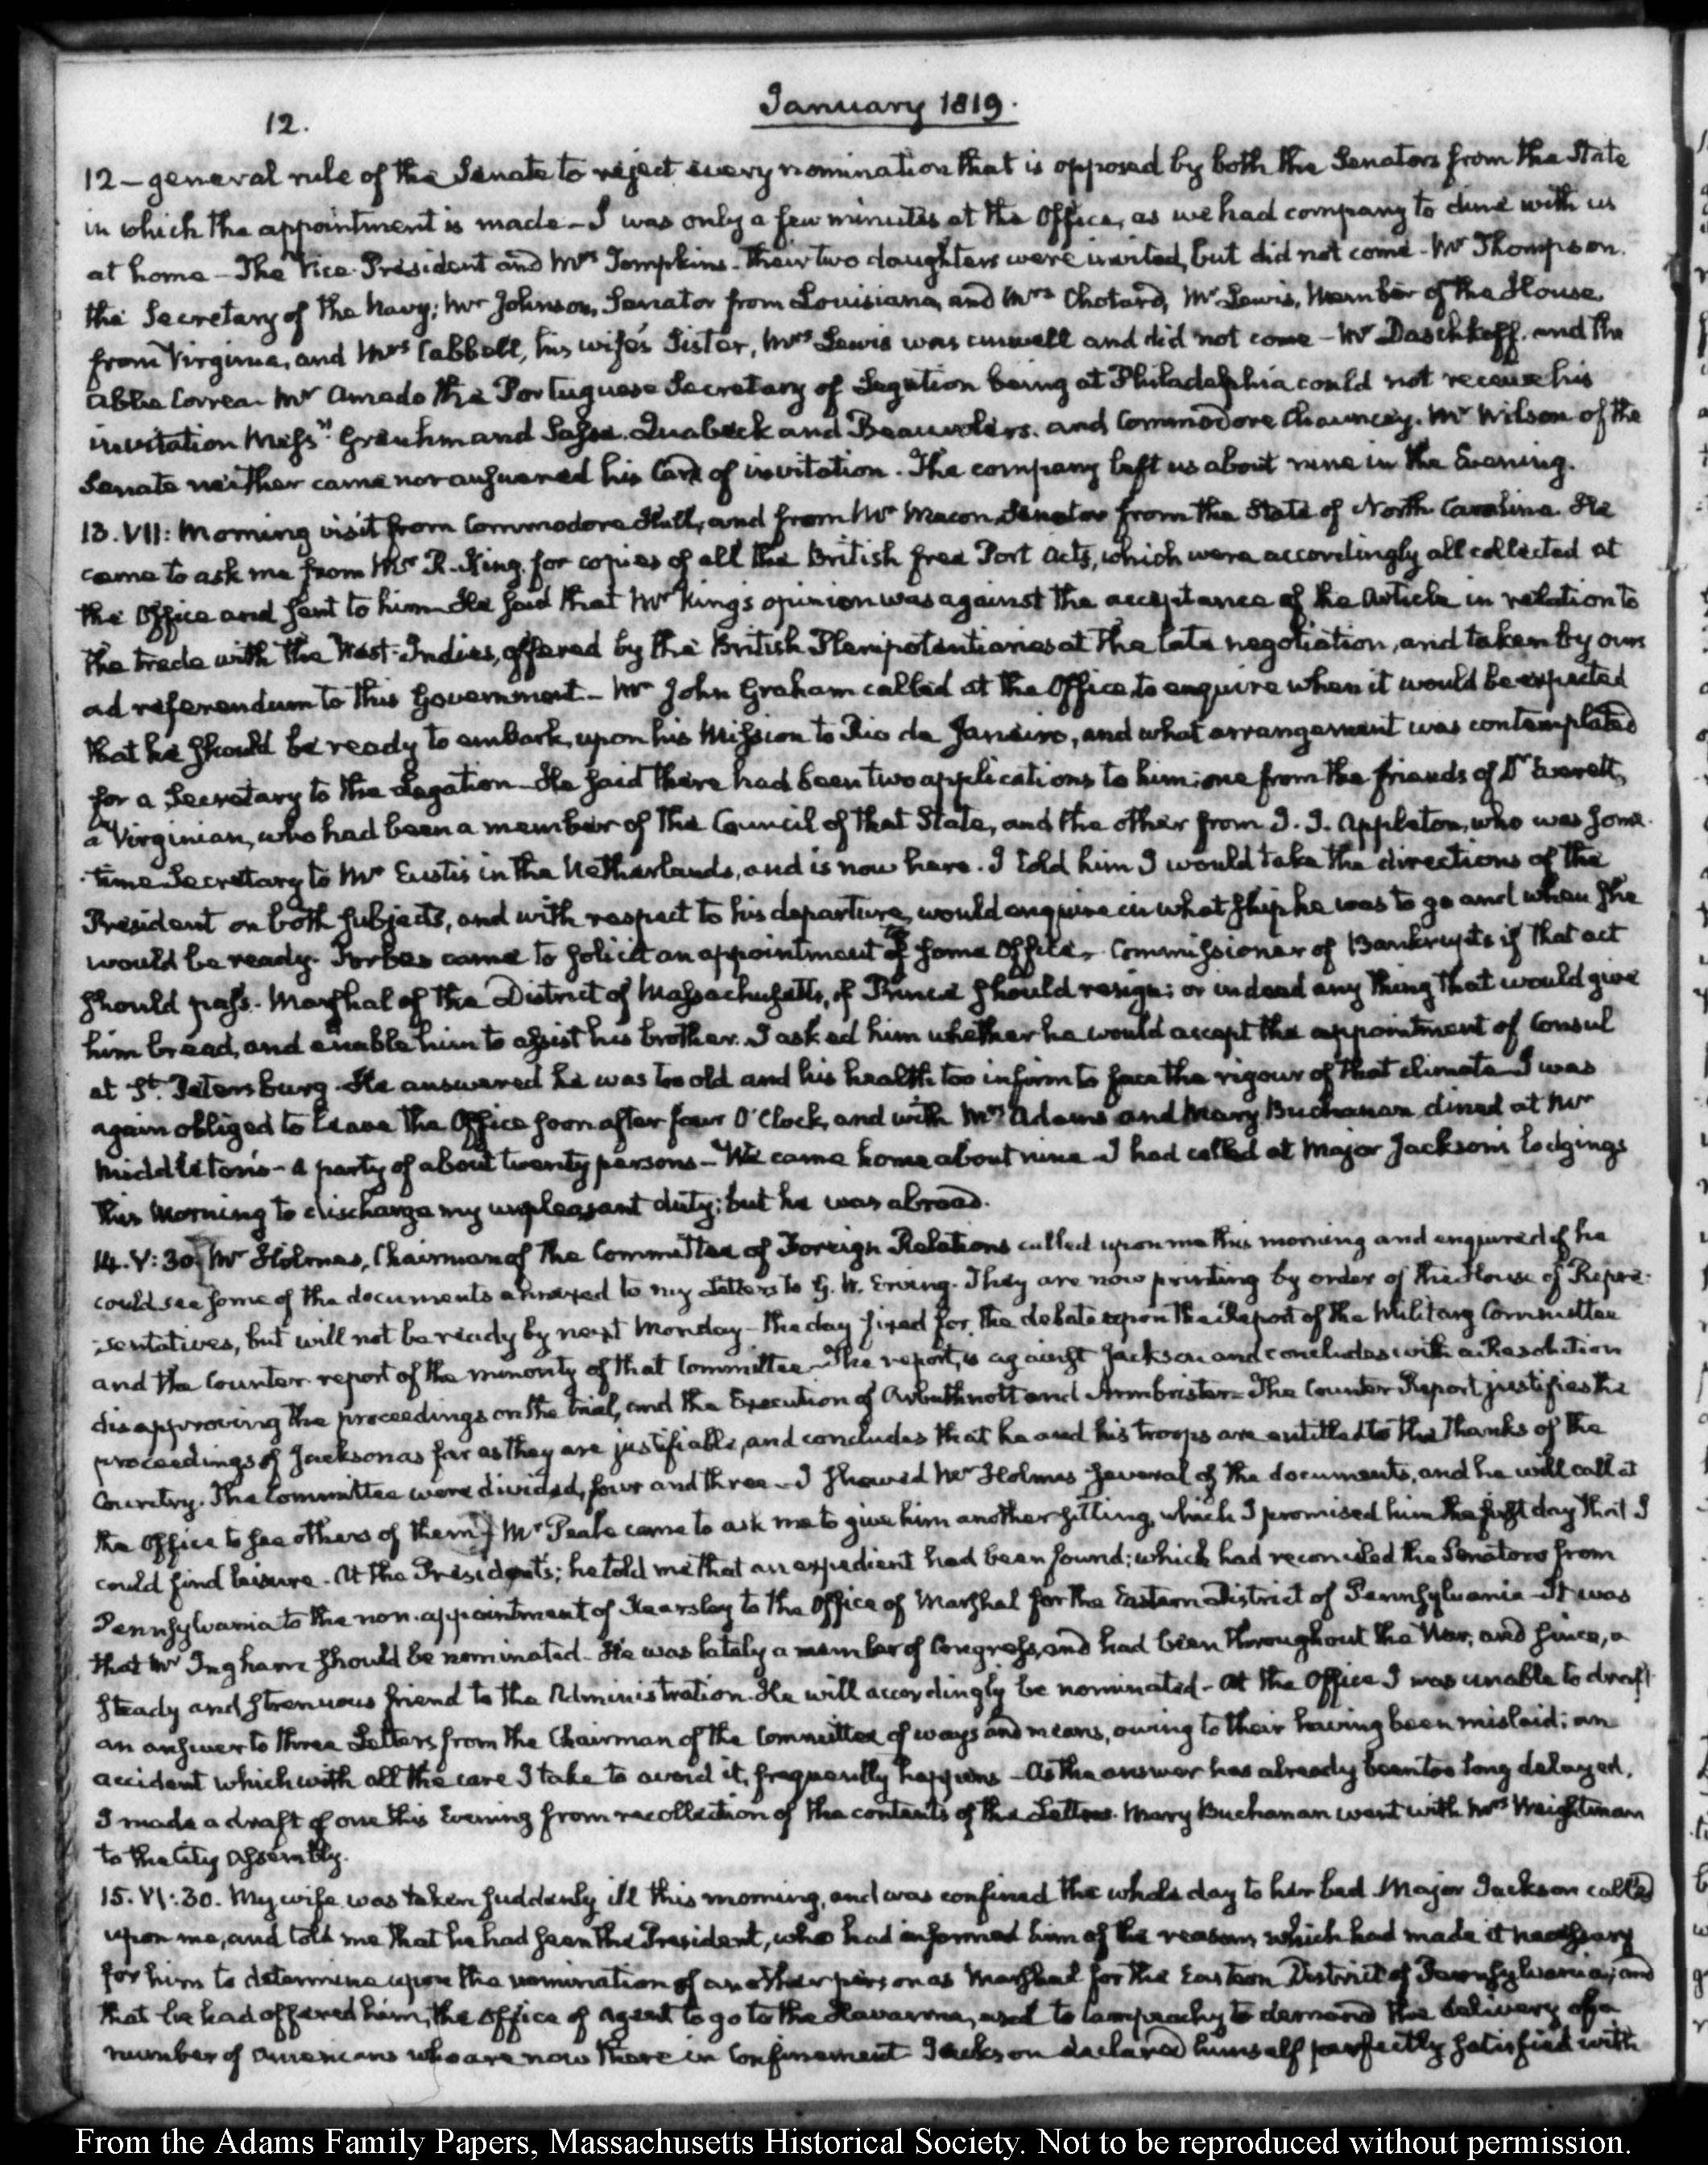 January 1819.
12.
12 – general rule of the Senate to reject every nomination that is opposed by both the Senators from the State
in which the appointment is made – I was only a few minutes at the Office, as we had company to dine with us
at home – The Vice-President and Mrs Tompkins – their two daughters were invited, but did not come – Mr Thompson
the Secretary of the Navy; Mr Johnson, Senator from Louisiana, and Mrs Chotard, Mr Lewis, Member of the House
from Virginia, and Mrs Cabbell, his wife's Sister, Mrs Lewis was unwell and did not come – Mr Daschkoff, and the
Abbé Correa – Mr Amado the Portuguese Secretary of Legation being at Philadelphia could not receive his
invitation Messrs Greuhm and Sasse. Quabeck and Beauvoliers. and Commodore Chauncey. Mr Wilson of the
Senate neither came nor answered his Card of invitation. The company left us about nine in the Evening.
13. VII: Morning visit from Commodore Hull, and from Mr Macon, Senator from the State of North Carolina. He
came to ask me from Mr R. King, for copies of all the British free Port Acts, which were accordingly all collected at
the Office and sent to him – He said that Mr King's opinion was against the acceptance of the Article in relation to
the trade with the West-Indies, offered by the British Plenipotentiaries at the late negotiation, and taken by ours
ad referendum to this Government – Mr John Graham called at the Office to enquire when it would be expected
that he should be ready to embark, upon his Mission to Rio de Janeiro, and what arrangement was contemplated
for a Secretary to the Legation – He said there had been two applications to him; one from the friends of Dr Everett,
a Virginian, who had been a member of the Council of that State, and the other from J. J. Appleton, who was some-
-time Secretary to Mr Eustis in the Netherlands, and is now here. I told him I would take the directions of the
President on both subjects, and with respect to his departure, would enquire in what ship he was to go and when she
would be ready. Forbes came to solicit an appointment to some Office – Commissioner of Bankrupts if that act
should pass – Marshal of the District of Massachusetts, if Prince should resign; or indeed any thing that would give
him bread, and enable him to assist his brother. I asked him whether he would accept the appointment of Consul
at St. Petersburg – He answered he was too old and his health too infirm to face the rigour of that climate – I was
again obliged to leave the Office soon after four O'Clock, and with Mrs Adams and Mary Buchanan dined at Mr
Middleton's – A party of about twenty persons – We came home about nine – I had called at Major Jackson's lodgings
this Morning to discharge my unpleasant duty; but he was abroad.
14. V: 30. Mr Holmes, Chairman of the Committee of Foreign Relations called upon me this morning and enquired if he
could see some of the documents annexed to my Letters to G. W. Erving. They are now printing by order of the House of Repre-
-sentatives, but will not be ready by next Monday – the day fixed for the debate upon the Report of the Military Committee
and the Counter-report of the minority of that Committee – The report, is against Jackson and concludes with a Resolution
disapproving the proceedings on the trial, and the Execution of Arbuthnott and Armbrister – The Counter Report justifies the
proceedings of Jackson as far as they are justifiable, and concludes that he and his troops are entitled to the Thanks of the
Country. The Committee were divided, four and three – I showed Mr Holmes several of the documents, and he will call at
the Office to see others of them. Mr Peale came to ask me to give him another sitting, which I promised him the first day that I
could find leisure – At the President's; he told me that an expedient had been found; which had reconciled the Senators from
Pennsylvania to the non-appointment of Kearsley to the Office of Marshal for the Eastern District of Pennsylvania – It was
that Mr Ingham should be nominated – He was lately a member of Congress, and had been throughout the War, and since, a
steady and strenuous friend to the Administration. He will accordingly be nominated – At the Office I was unable to draft
an answer to three Letters from the Chairman of the Committee of ways and means, owing to their having been mislaid; an
accident which with all the care I take to avoid it, frequently happens – As the answer has already been too long delayed,
I made a draft of one this Evening from recollection of the contents of the Letters. Mary Buchanan went with Mrs Weightman
to the City Assembly.
15. VI: 30. My wife was taken suddenly ill this morning, and was confined the whole day to her bed. Major Jackson called
upon me, and told me that he had seen the President, who had informed him of the reasons which had made it necessary
for him to determine upon the nomination of another person as Marshal for the Eastern District of Pennsylvania; and
that he had offered him, the Office of Agent to go to the Havanna, and to Campeachy to demand the delivery of a
number of Americans who are now there in confinement – Jackson declared himself perfectly satisfied with
From the Adams Family Papers, Massachusetts Historical Society. Not to be reproduced without permission.